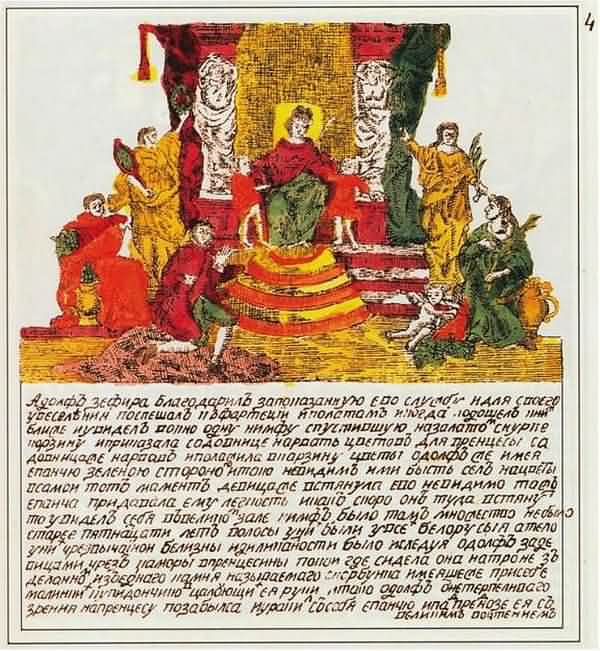 4
Адолфъ зефира благодарилъ запоказанную ево службу идля своего
увеселѣния поспешалъ икогда подошелъ
ближе иувиделъ вокно одну нимфу спустившую назалатом снурке
корзину иприказала садовнице нарвать цветовъ для пренцесы са
довницаже нарвавъ иполажила вкарзину цветы адолфъ же имея
епанчю зеленою стороною итако невидимъ ими бысть селъ нацветы
всамой тотъ маментъ девицаже встянула ево невидимо
епанча придавала ему легкость икакъ скоро онъ туда встянут
то увиделъ себя ввеликой зале нимфъ было тамъ множество небыло
старее пятнацати летъ волосы уних были увсехъ белорусыя атело
уних чрезвычайной белизны иделикатности было иследуя адолфъ заде
вицами чрезъ каморы впренцесины покои где сидела она натроне зъ
деланномъ камня называемаго присебе
цалующихъ ея руки , итако адолфъ отнетерпеливаго
зрения напренцесу позабылся ссобя епанчю ея съ
великимъ почтениемъ